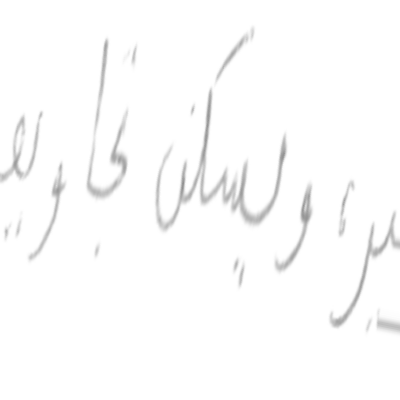 ويسكن تجاويف